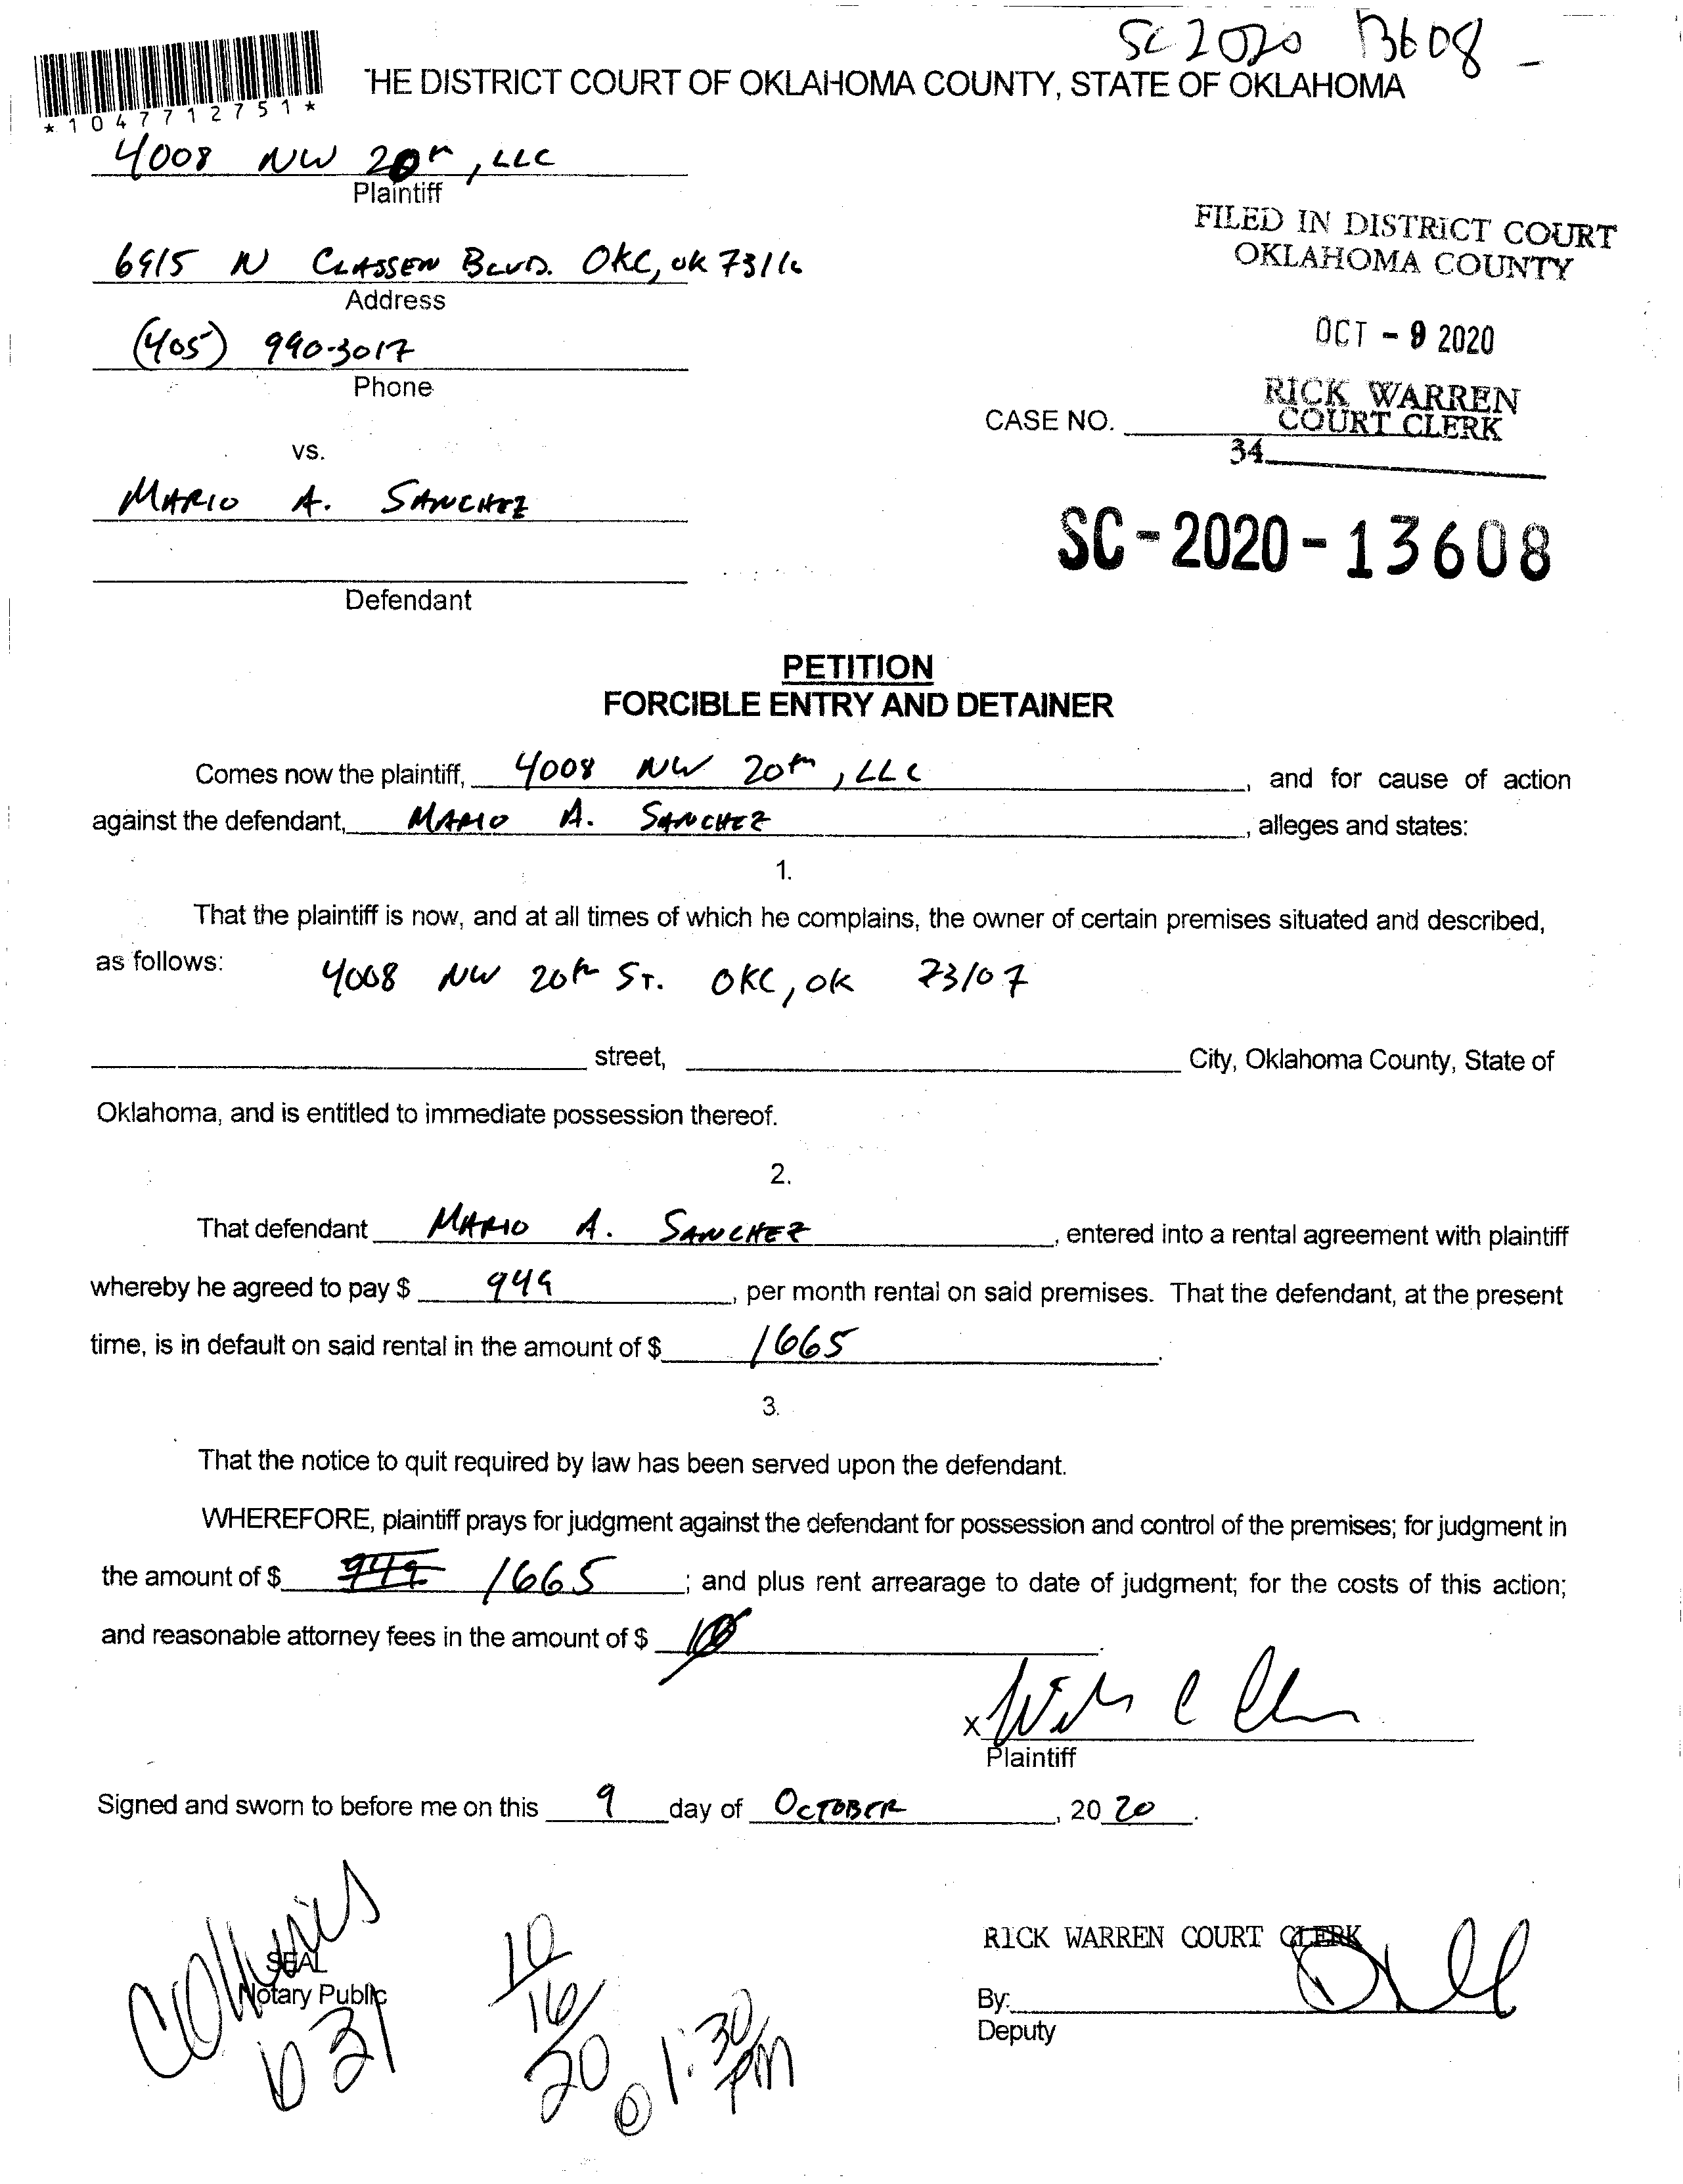 SC 2020 13608 -
*1047712751*
THE DISTRICT COURT OF OKLAHOMA COUNTY, STATE OF OKLAHOMA
4008 NW 20th, LLC
Plaintiff
6915 N CLASSEN BLVD. OKC, OK 73116
Address
(405) 990-3017
Phone
FILED IN DISTRICT COURT
OKLAHOMA COUNTY
OCT - 9 2020
RICK WARREN
COURT CLERK
CASE NO.
34
vs.
MARIO A. SANCHEZ
Defendant
SC-2020-13608
PETITION
FORCIBLE ENTRY AND DETAINER
Comes now the plaintiff, 4008 NW 20th, LLC, and for cause of action
against the defendant, MARIO A. SANCHEZ, alleges and states:
1.
That the plaintiff is now, and at all times of which he complains, the owner of certain premises situated and described,
as follows: 4008 NW 20th ST. OKC, OK 73107
street, City, Oklahoma County, State of
Oklahoma, and is entitled to immediate possession thereof.
2.
That defendant MARIO A. SANCHEZ, entered into a rental agreement with plaintiff
whereby he agreed to pay $ 949, per month rental on said premises. That the defendant, at the present
time, is in default on said rental in the amount of $ 1665.
3.
That the notice to quit required by law has been served upon the defendant.
WHEREFORE, plaintiff prays for judgment against the defendant for possession and control of the premises; for judgment in
the amount of $ 949 1665; and plus rent arrearage to date of judgment; for the costs of this action;
and reasonable attorney fees in the amount of $ .
x
Plaintiff
Signed and sworn to before me on this 9 day of OCTOBER, 20 20.
SEAL
Notary Public
10/16/20 @ 1:30 PM
RICK WARREN COURT CLERK
By:
Deputy